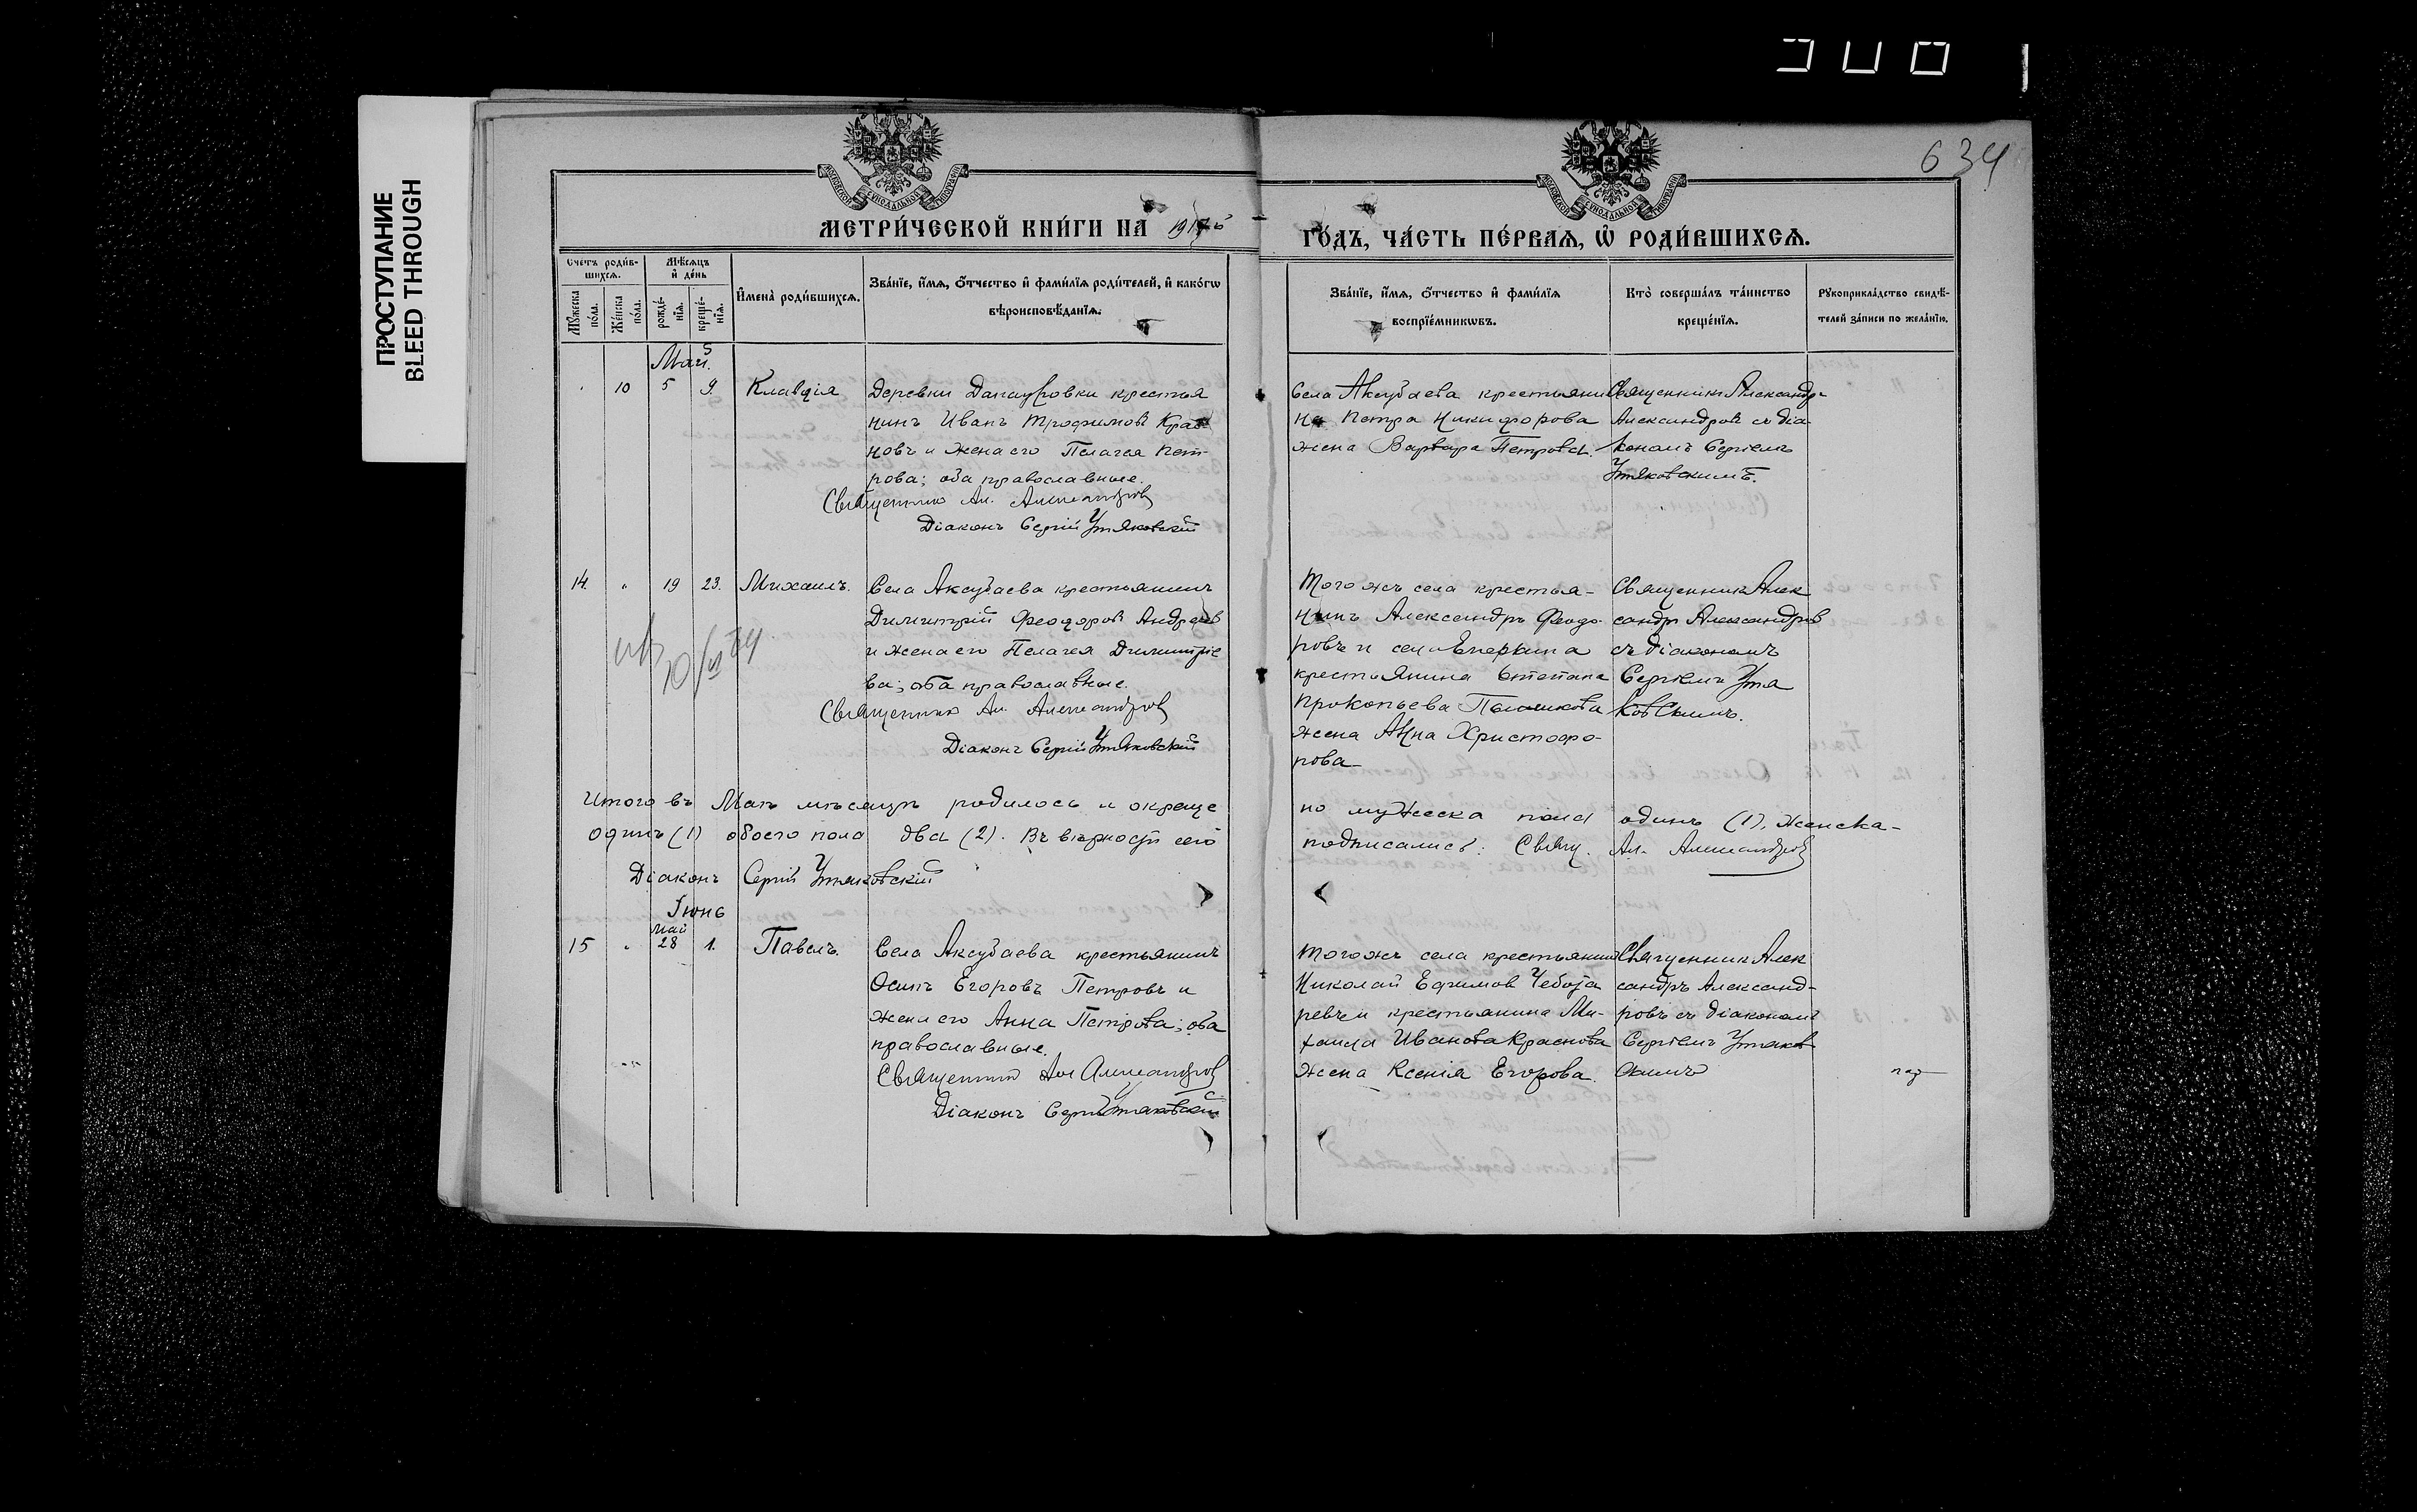 ПРОСТУПАНИЕ
BLEED THROUGH
634
МОСКОВСКОЙ СѴНОДАЛЬНОЙ ТИПОГРАФІИ
МОСКОВСКОЙ СѴНОДАЛЬНОЙ ТИПОГРАФІИ
МЕТРИ́ЧЕСКОЙ КНИ́ГИ НА
ГО́ДЪ, ЧА́СТЬ ПЕ́РВАѦ, Ѡ҆ РОДИ́ВШИХСѦ.
Счетъ роди́в-
шихсѧ.
Мꙋ́жеска по́ла.
Же́нска по́ла.
Мѣ́сѧцъ
и҆ де́нь
рожде́-
нїѧ.
креще́-
нїѧ.
И҆мена̀ роди́вшихсѧ.
Зва́нїе, и҆́мѧ, ѻ҆́тчество и҆ фами́лїѧ роди́телей, и҆ како́гѡ
вѣроисповѣ́данїѧ.
Зва́нїе, и҆́мѧ, ѻ҆́тчество и҆ фами́лїѧ
воспрїе́мникѡвъ.
Кто̀ соверша́лъ та́инство
креще́нїѧ.
Рꙋкоприкла́дство свидѣ́-
телей за́писи по жела́нїю.
Май.
10 5 9. Клавдія
Деревни крестья
нинъ Иванъ Трофимовъ
новъ и жена его Пелагея Пет-
рова; оба православные.
Священникъ Ал. Александровъ
Діаконъ Сергій Утяковскій
Села Аксубаева крестьяни
на Петра Никифорова
жена Варвара Петрова.
Священникъ Александръ
Александровъ съ діа
кономъ Сергіемъ
Утяковскимъ.
14. 19 23. Михаилъ.
Села Аксубаева крестьянинъ
Димитрій Феодоровъ Андреев
и жена его Пелагея Димитріе
ва; оба православные.
Священникъ Ал. Александровъ
Діаконъ Сергій Утяковскій
Того жъ села крестья-
нинъ Александръ Феодо-
ровъ и села Енеркина
крестьянина Степана
Прокопьева
жена Анна Христофо-
рова
Священникъ Алек
сандръ Александров
съ діакономъ
Сергіемъ Утя
ковскимъ.
Итого въ Маѣ мѣсяцѣ родилось и окреще
но мужеска пола одинъ (1), женска-
одинъ (1) обоего пола два (2). Въ вѣрности сего
подписались: Свящ. Ал. Александровъ
Діаконъ Сергій Утяковскій
Іюнь
май
15 28 1. Павелъ.
Села Аксубаева крестьянинъ
Осипъ Егоровъ Петровъ и
жена его Анна Петрова; оба
православные.
Священникъ Ал Александровъ
Діаконъ Сергій Утяковскій
Того жъ села крестьянинъ
Николай Ефимов Чебота
ревъ и крестьянина Ми-
хаила Иванова Краснова
жена Ксенія Егорова.
Священник Алек
сандръ Александ-
ровъ съ діакономъ
Сергіемъ Утяков
скимъ